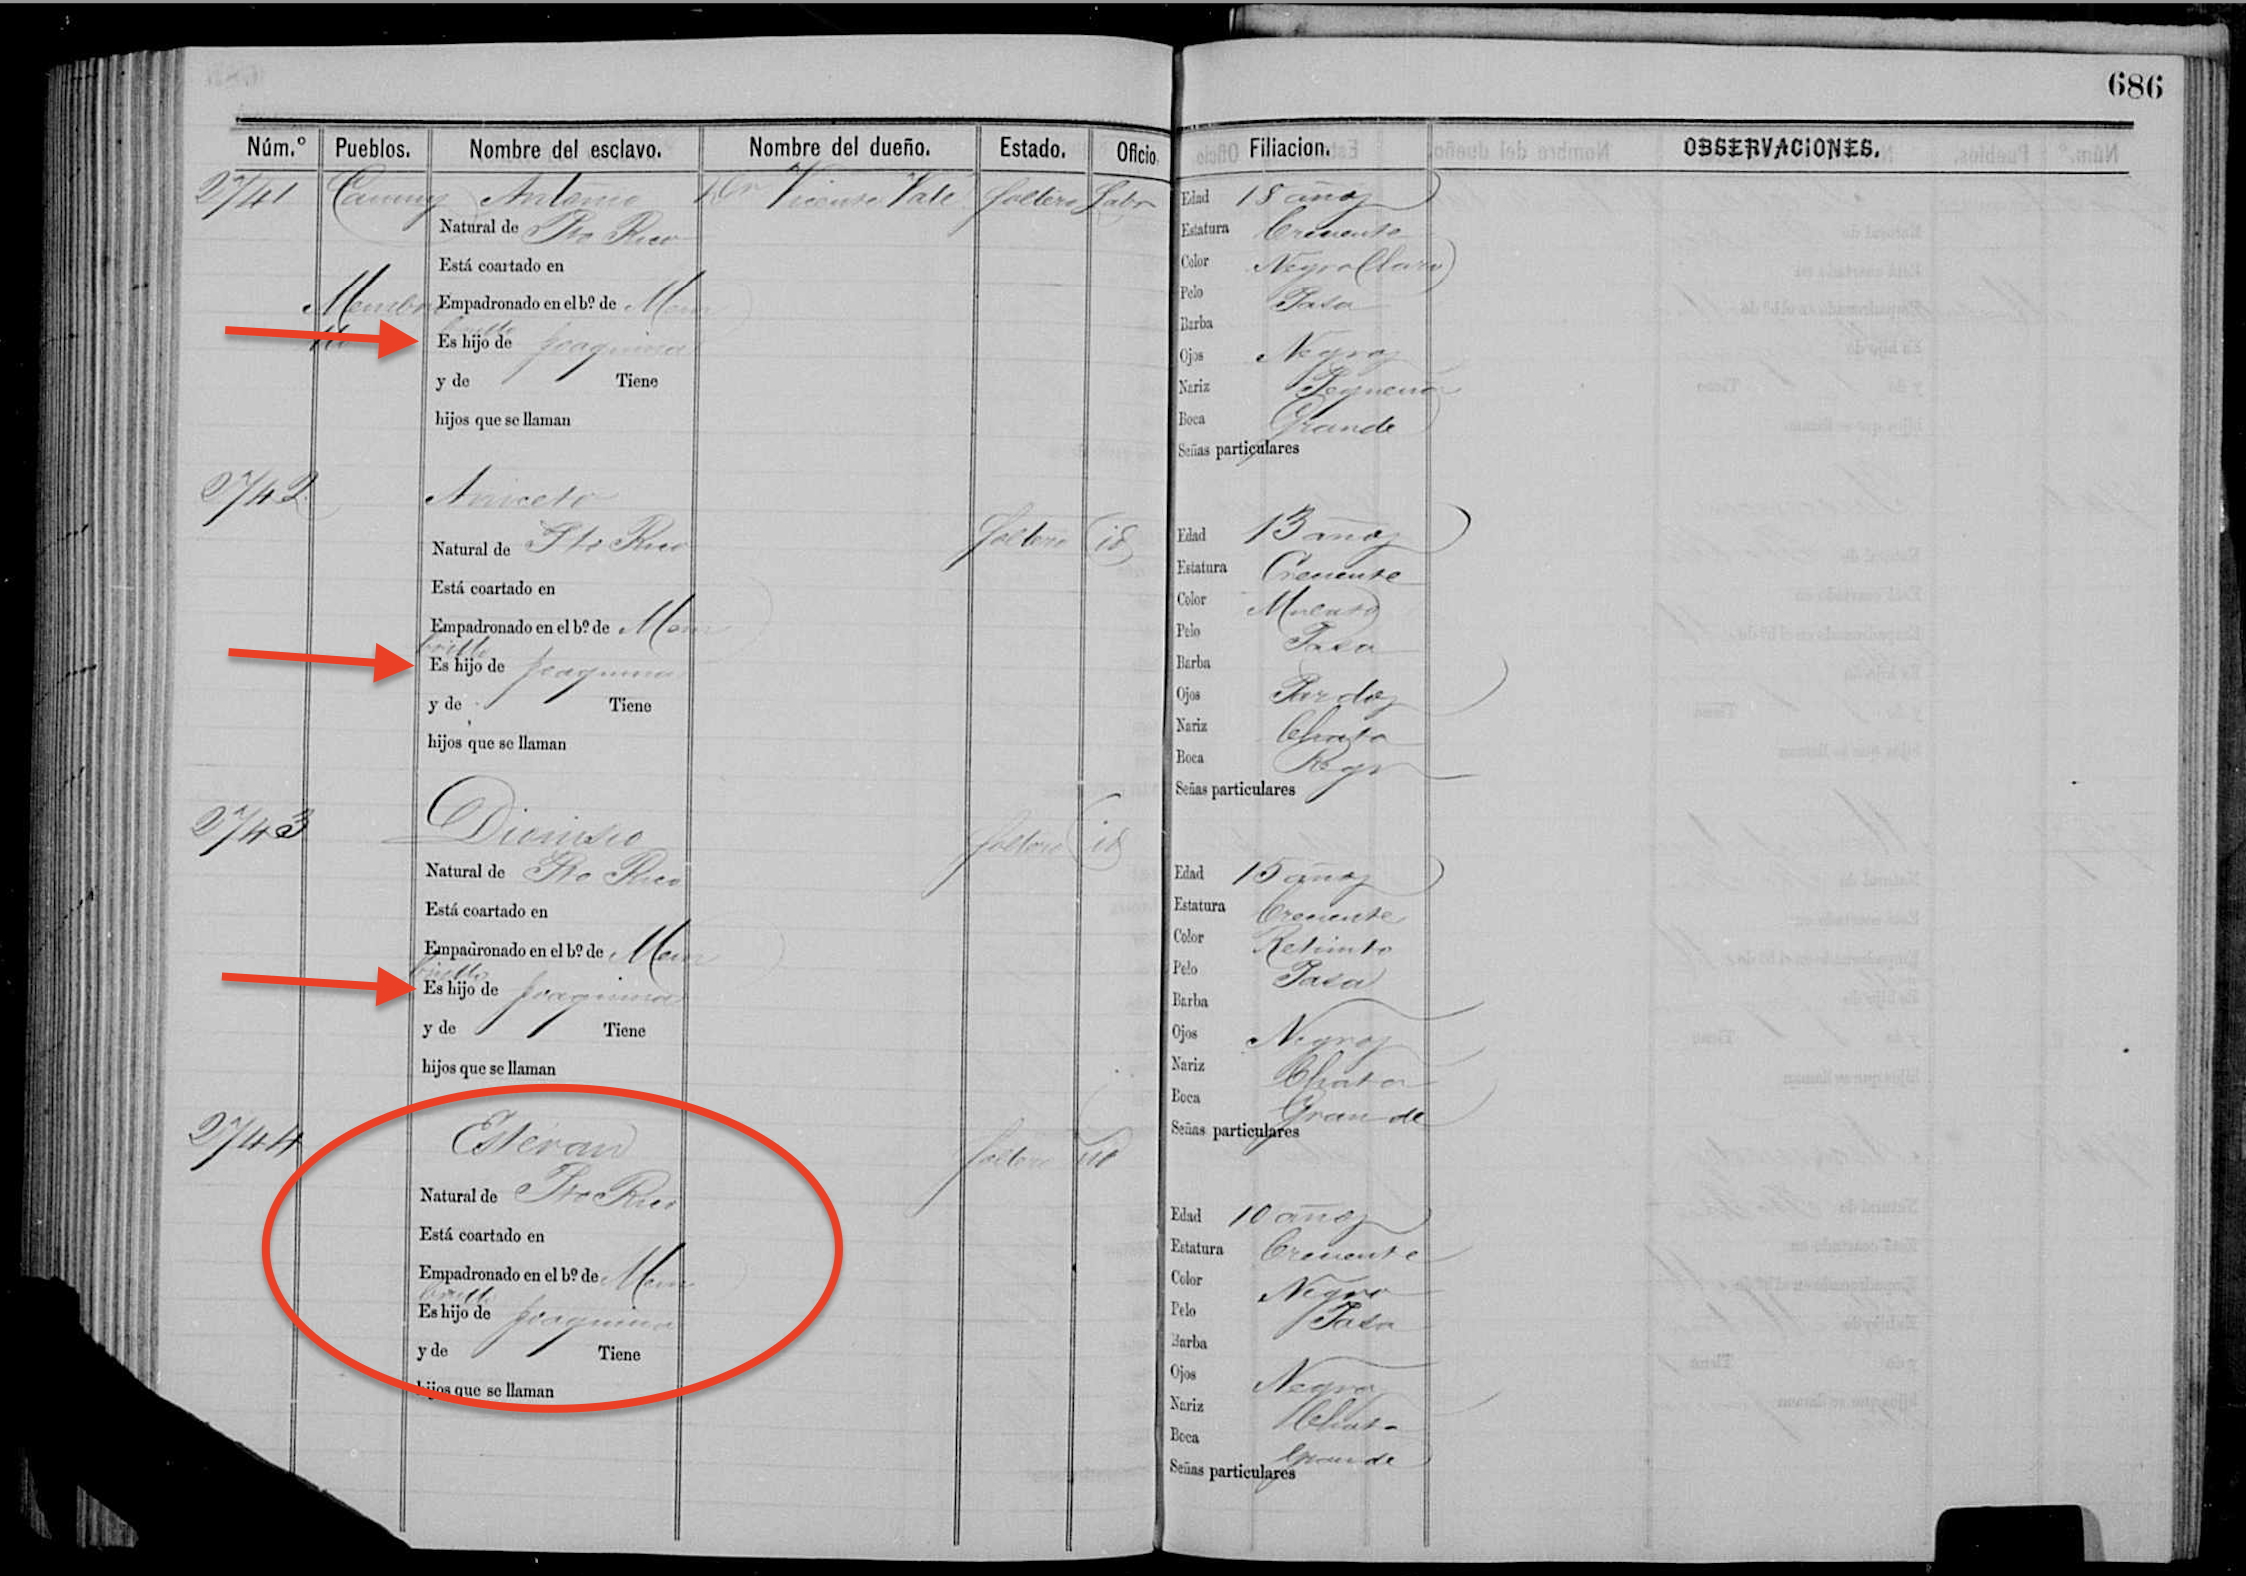 686
Núm.º Pueblos. Nombre del esclavo. Nombre del dueño. Estado. Oficio Filiacion. OBSERVACIONES.
2741 Camuy Antonio Dn Vicente soltero Labr
Natural de Pto Rico
Está coartado en
Membri Empadronado en el bº. de Mem
llo brillo
Es hijo de Joaquina
y de Tiene
hijos que se llaman
Edad 18 años
Estatura Creciente
Color Negro Claro
Pelo Pasa
Barba
Ojos Negros
Nariz Pequena
Boca Grande
Señas particulares
2742 Aniceto soltero id
Natural de Pto Rico
Está coartado en
Empadronado en el bº. de Mem
brillo
Es hijo de Joaquina
y de Tiene
hijos que se llaman
Edad 13 años
Estatura Creciente
Color Mulato
Pelo Pasa
Barba
Ojos Pardos
Nariz Chata
Boca Regr
Señas particulares
2743 Dionisio soltero id
Natural de Pto Rico
Está coartado en
Empadronado en el bº. de Mem
brillo
Es hijo de Joaquina
y de Tiene
hijos que se llaman
Edad 15 años
Estatura Creciente
Color Retinto
Pelo Pasa
Barba
Ojos Negros
Nariz Chata
Boca Grande
Señas particulares
2744 Estevan soltero id
Natural de Pto Rico
Está coartado en
Empadronado en el bº. de Mem
brillo
Es hijo de Joaquina
y de Tiene
hijos que se llaman
Edad 10 años
Estatura Creciente
Color Negro
Pelo Pasa
Barba
Ojos Negros
Nariz Chata
Boca Grande
Señas particulares